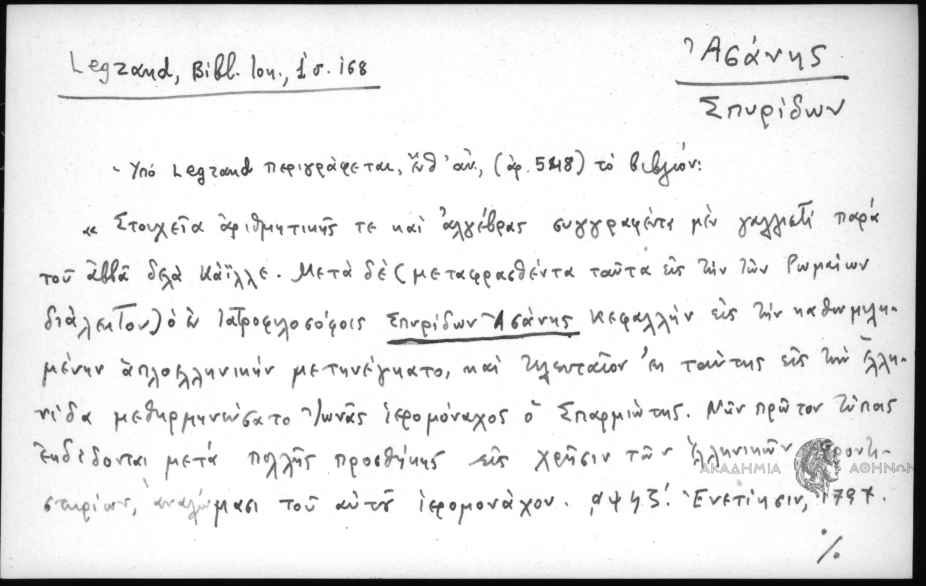 Legrand, Bibl. Ion., 1 σ. 168
Ἀσάνης
Σπυρίδων
- Ὑπό Legrand περιγράφεται, ἔνθ' ἀν., (ἀρ. 548) τό βιβλίον:
« Στοιχεῖα ἀριθμητικῆς τε καί ἀλγέβρας συγγραφέντα μέν γαλλιστί παρά
τοῦ ἀββᾶ δελά Καΐλλε. Μετά δέ (μεταφρασθέντα ταῦτα εἰς τήν τῶν Ρωμαίων
διάλεκτον) ὁ ἐν Ἰατροφιλοσόφοις Σπυρίδων Ἀσάνης Κεφαλλήν εἰς τήν καθωμιλη-
μένην ἁπλοελληνικήν μετηνέγκατο, καί τελευταῖον ἐκ ταύτης εἰς τήν ἑλλη-
νίδα μεθηρμηνεύσατο Ἰωνᾶς ἱερομόναχος ὁ Σπαρμιώτης. Νῦν πρῶτον τύποις
ἐκδίδονται μετά πολλῆς προσθήκης εἰς χρῆσιν τῶν ἑλληνικῶν φροντι-
στηρίων, ἀναλώμασι τοῦ αὐτοῦ ἱερομονάχου. ͵αψϟζ΄. Ἐνετίησιν, 1797.
ΑΚΑΔΗΜΙΑ ΑΘΗΝΩΝ
·/.